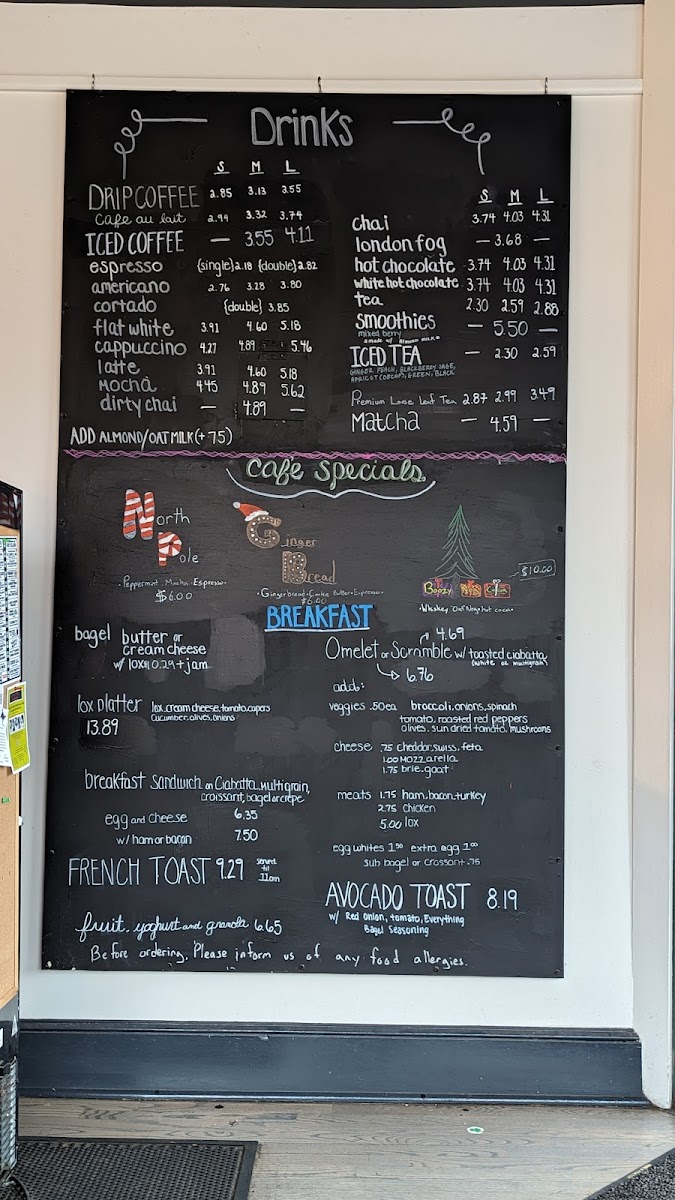 Drinks
S M L
DRIP COFFEE 2.85 3.13 3.55
Cafe au lait 2.94 3.32 3.74
ICED COFFEE — 3.55 4.11
espresso {single} 2.18 {double} 2.82
americano 2.76 3.28 3.80
cortado {double} 3.85
flat white 3.91 4.60 5.18
cappuccino 4.27 4.89 5.46
latte 3.91 4.60 5.18
mocha 4.45 4.89 5.62
dirty chai — 4.89 —
ADD ALMOND/OAT MILK (+75)
S M L
chai 3.74 4.03 4.31
london fog — 3.68 —
hot chocolate 3.74 4.03 4.31
white hot chocolate 3.74 4.03 4.31
tea 2.30 2.59 2.88
smoothies — 5.50 —
mixed berry
*made w/ Almond MILK*
ICED TEA — 2.30 2.59
GINGER PEACH, BLACKBERRY SAGE,
APRICOT (DECAF), GREEN, BLACK
Premium Loose Leaf Tea 2.87 2.99 3.49
Matcha — 4.59 —
cafe specials
North
Pole
•Peppermint•Mocha•Espresso•
$6.00
Ginger
Bread
•Gingerbread•Cookie Butter•Espresso•
$6.00
Boozy
$10.00
BREAKFAST
bagel butter or
cream cheese
w/ lox 10.29 + jam
lox platter lox, cream cheese, tomato, capers
13.89 cucumber, olives, onions
breakfast sandwich on Ciabatta, multigrain,
croissant, bagel or crepe
egg and cheese 6.35
w/ ham or bacon 7.50
FRENCH TOAST 9.29 served
til
11am
fruit, yoghurt and granola 6.65
4.69
Omelet or Scramble w/ toasted ciabatta
(white or multigrain)
6.76
add:
veggies .50ea broccoli, onions, spinach
tomato, roasted red peppers
olives, sun dried tomato, mushrooms
cheese .75 cheddar, swiss, feta
1.00 mozzarella
1.75 brie, goat
meats 1.75 ham, bacon, turkey
2.75 chicken
5.00 lox
egg whites 1.50 extra egg 1.00
sub bagel or crossant .75
AVOCADO TOAST 8.19
w/ Red Onion, tomato, Everything
Bagel Seasoning
Before ordering, Please inform us of any food allergies.